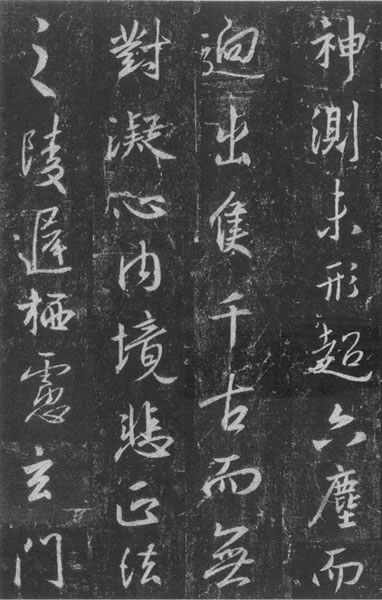 神測未形超六塵而
逈出隻千古而無
對凝心内境悲正法
之陵遲栖慮玄門